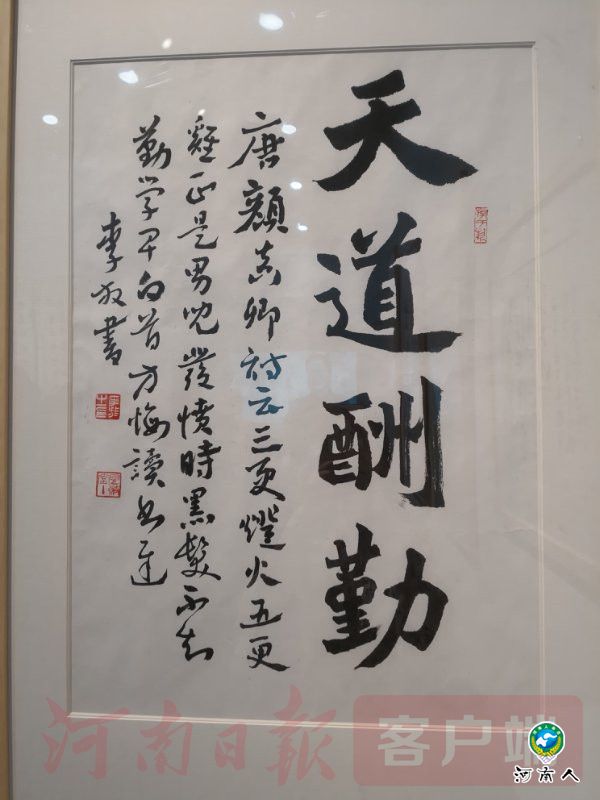 天道酬勤
唐顏真卿詩云三更燈火五更
雞正是男兒發憤時黑髮不知
勤學早白首方悔讀書遲
李放書
河南日报 客户端
河南人